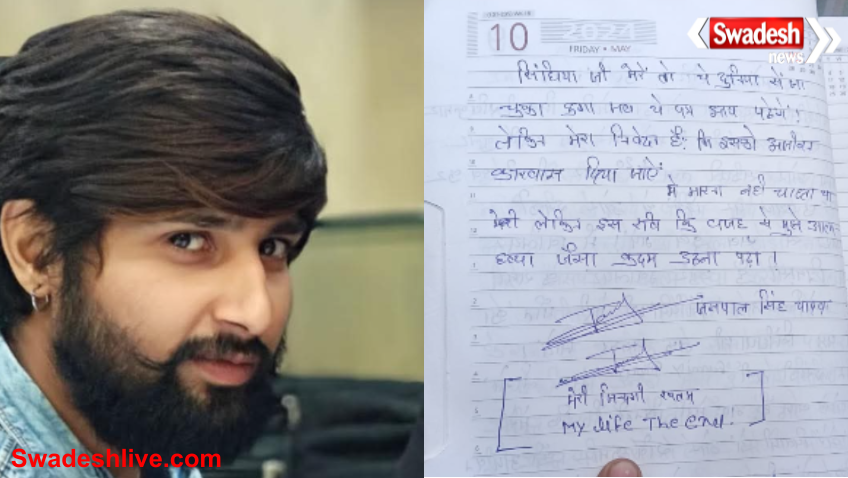 10
2024
FRIDAY • MAY
Swadesh
news
सिंधिया जी मेरे तो ये दुनिया से जा
चुका हुगा जब ये पत्र आप पढेगें !
लेकिन मेरा निवेदन है: कि इसको आजीवन
कारवास दिया जाऐं
मे मारना नही चाहता था
लेकिन इस सवि कि वजह से मुझे आत्म
हत्या जैसा कदम उठना पढ़ा !
सिंह यादव
मेरी जिन्दगी खत्म
My life The end.
Swadeshlive.com